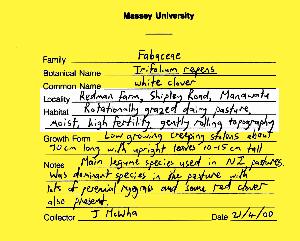 Massey University
Family Fabaceae
Botanical Name Trifolium repens
Common Name white clover
Locality Redman Farm, Shipley Road, Manawatu
Habitat Rotationally grazed dairy pasture
Moist, high fertility gently rolling topography
Growth Form Low growing creeping stolons about
10cm long with upright leaves 10-15cm tall
Notes Main legume species used in NZ pastures.
Was dominant species in the pasture with
lots of perennial ryegrass and some red clover
also present.
Collector J McWha Date 21/4/00